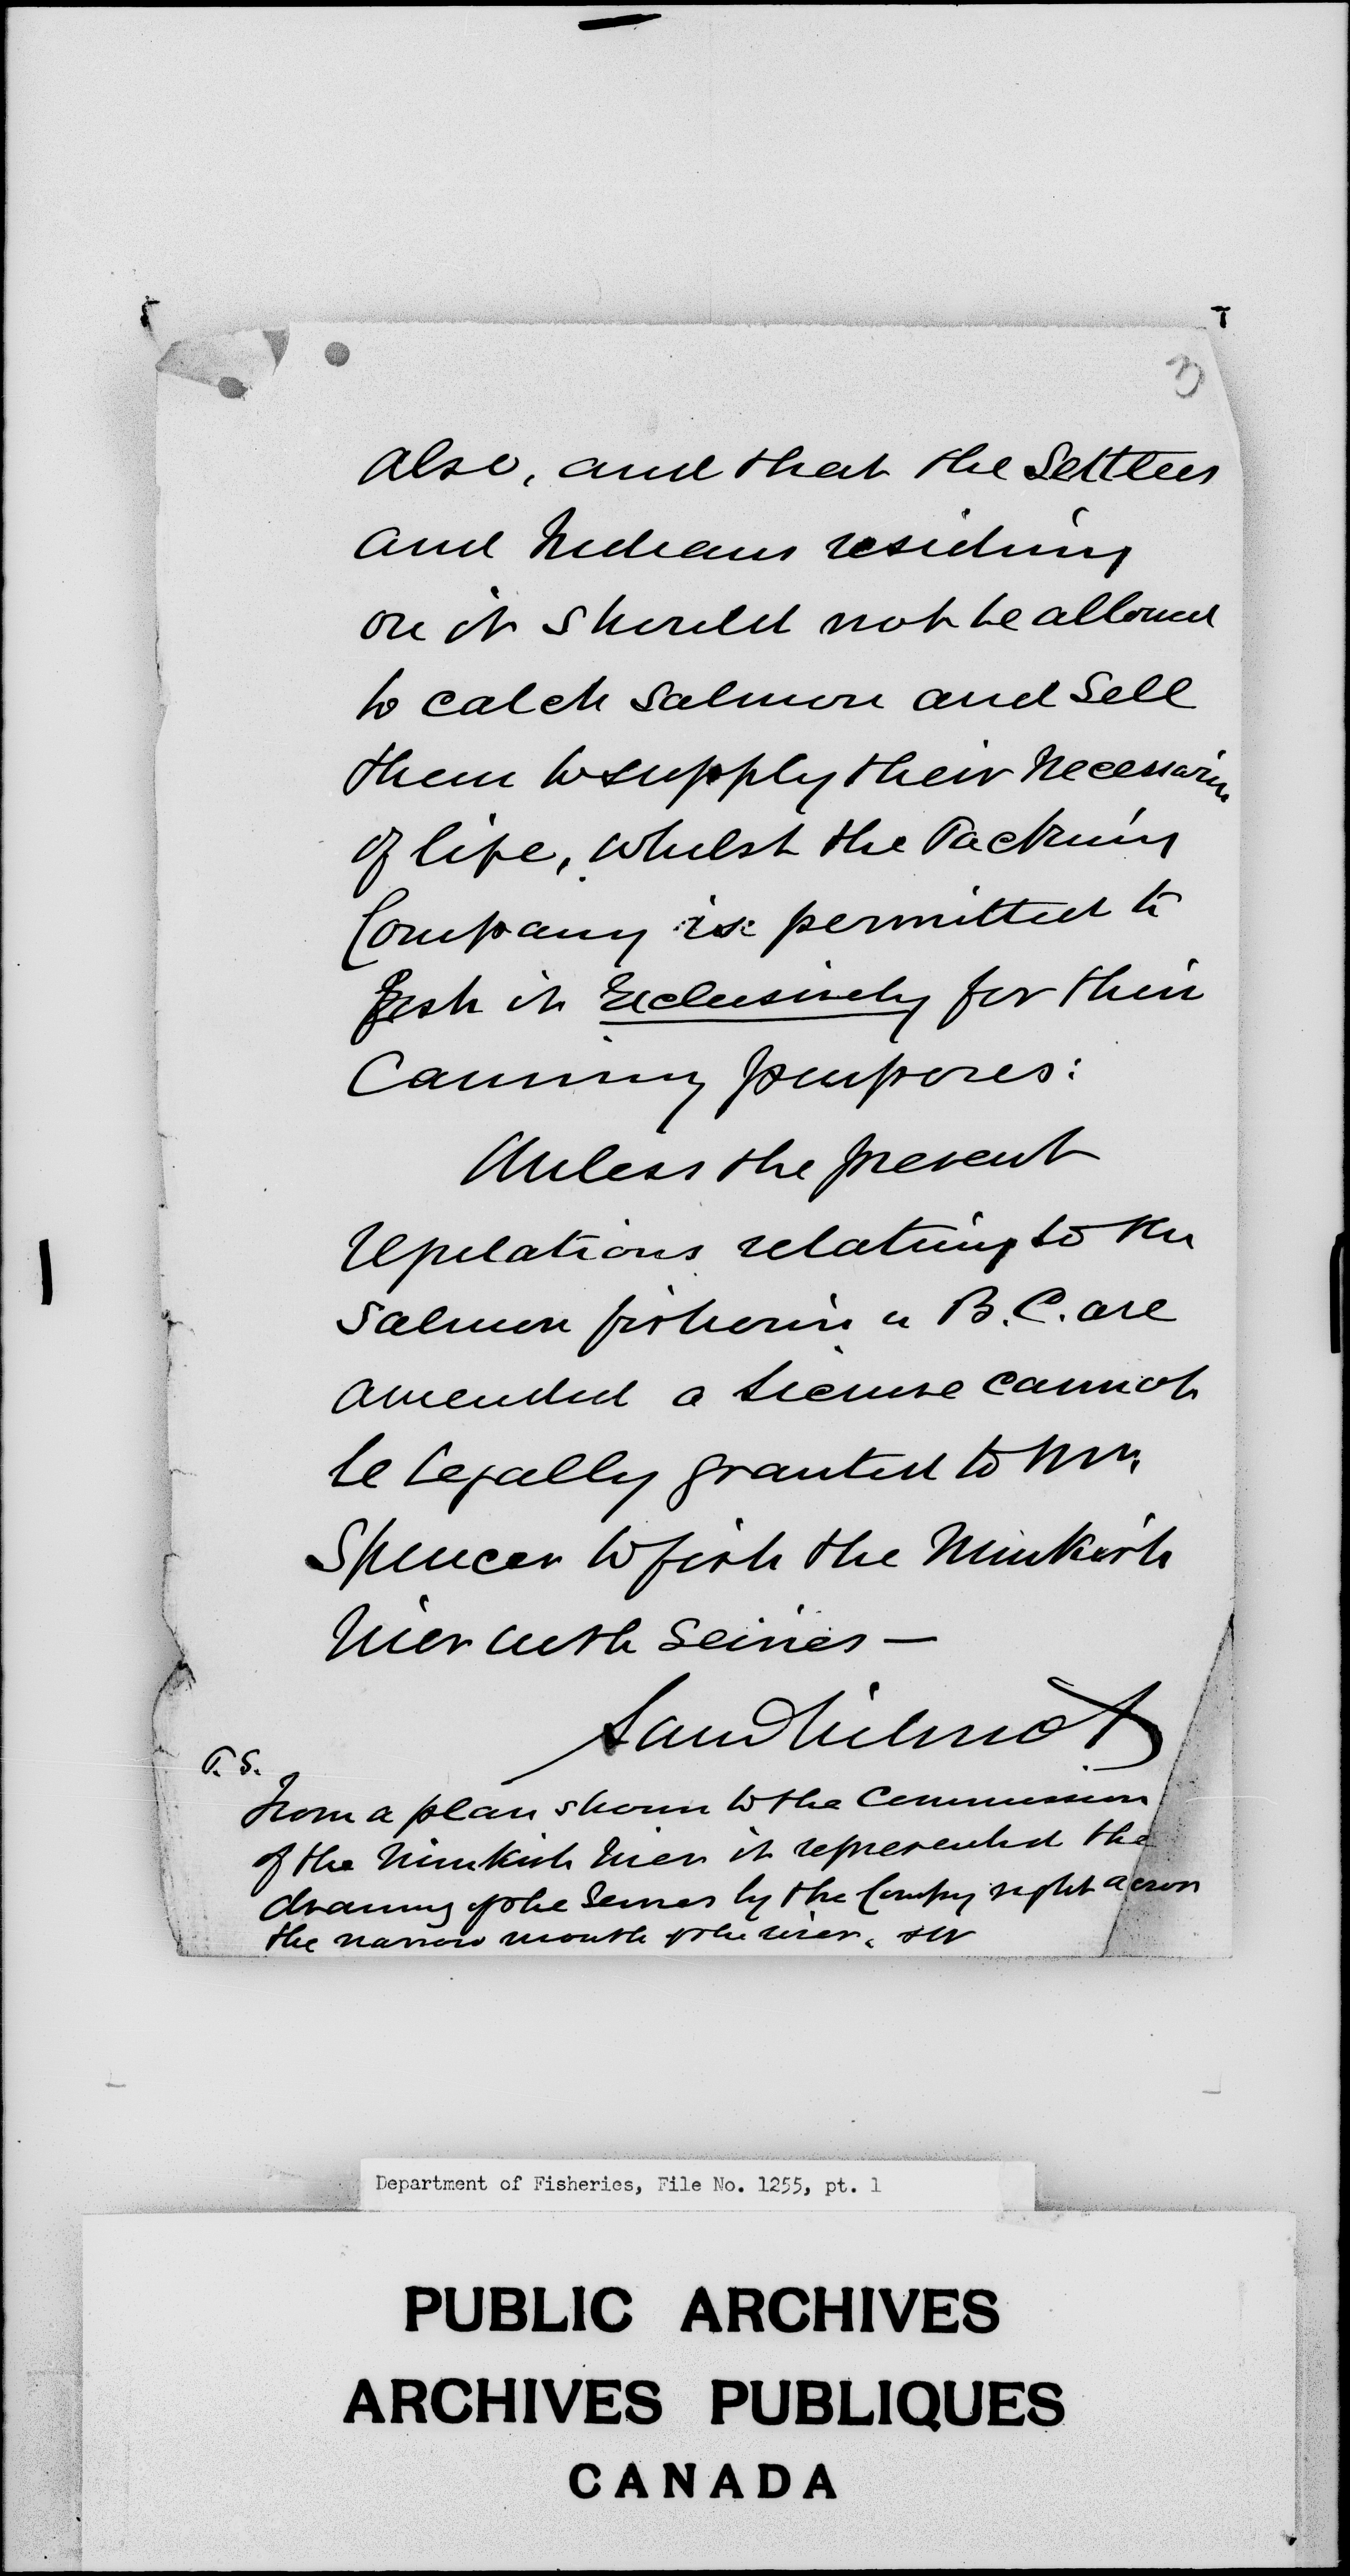 3
also, and that the Settlers
and Indians residing
on it should not be allowed
to catch salmon and sell
them to supply their necessaries
of life, whilst the Packing
Company is permitted to
fish it exclusively for their
Canning purposes:
Unless the present
regulations relating to the
salmon fisheries in B.C. are
amended a license cannot
be legally granted to Mr.
Spencer to fish the Nimkish
River with seines —
Saml Wilmot
P.S.
From a plan shown to the Commission
of the Nimkish River it represented the
drawing of the Seines by the Compy right across
the narrow mouth of the river. SW
Department of Fisheries, File No. 1255, pt. 1
PUBLIC ARCHIVES
ARCHIVES PUBLIQUES
CANADA